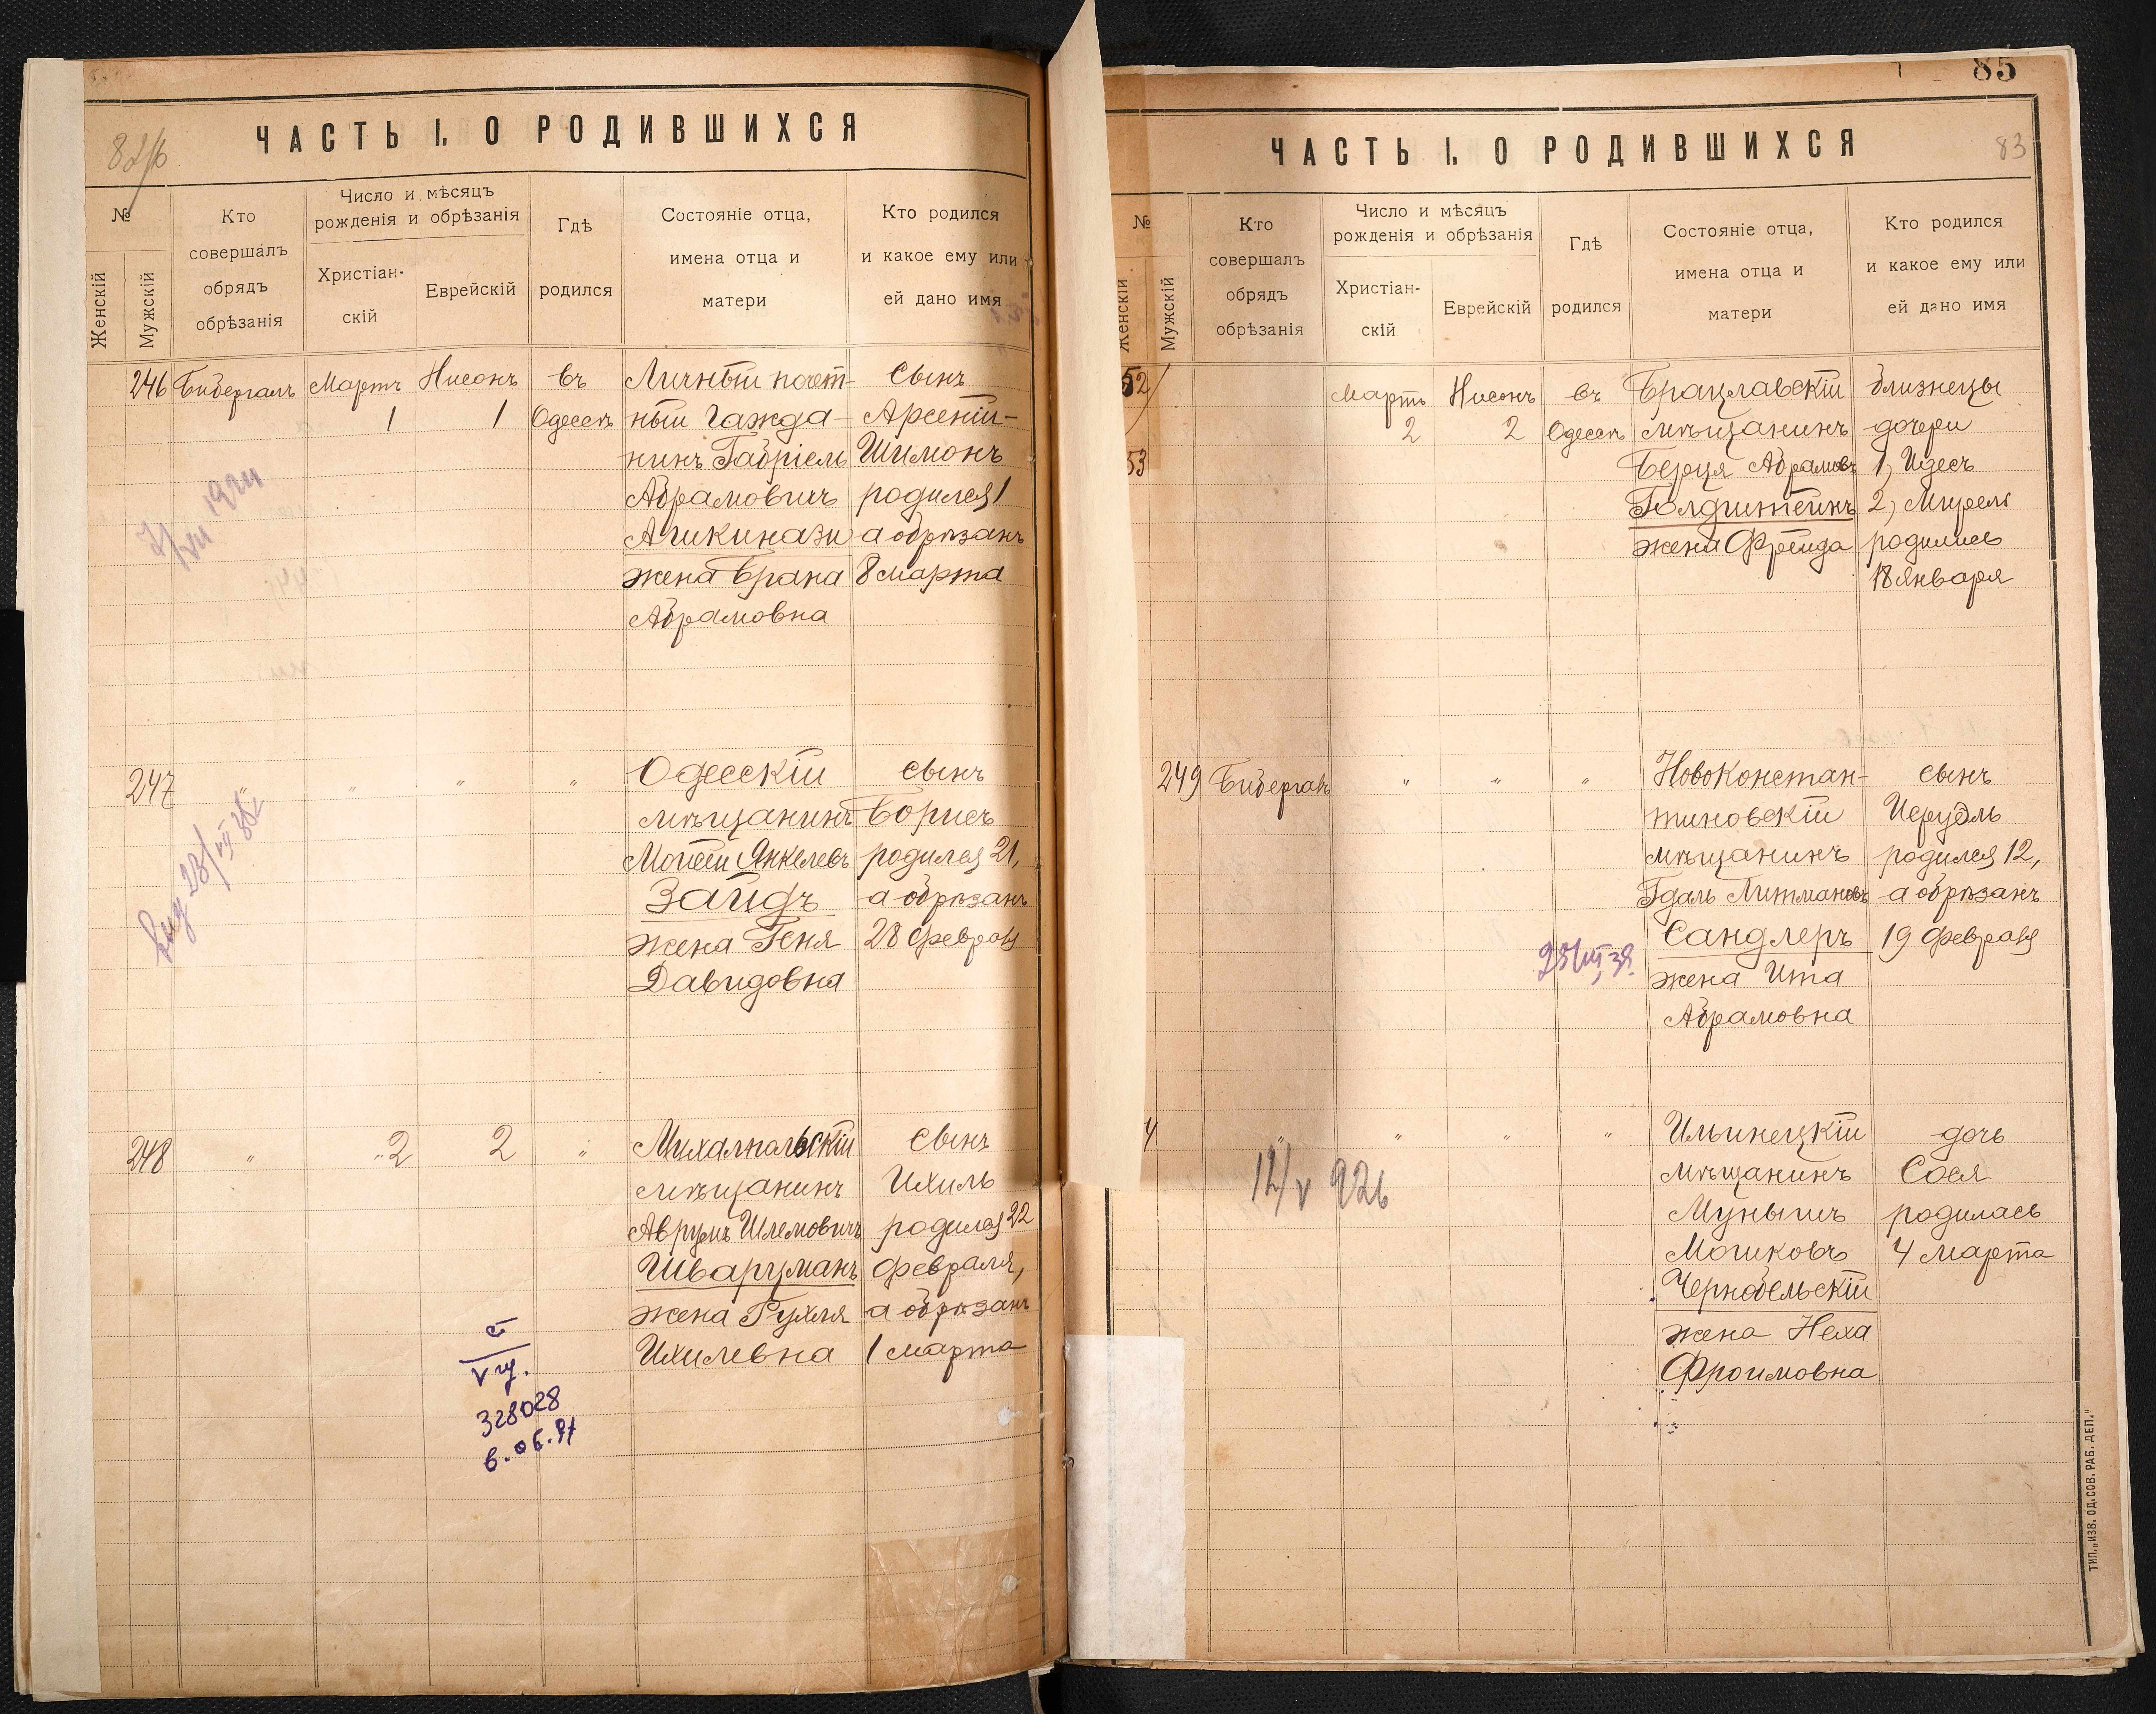 82/б
ЧАСТЬ I. О РОДИВШИХСЯ
№
Женскій
Мужскій
Кто
совершалъ
обрядъ
обрѣзанія
Число и мѣсяцъ
рожденія и обрѣзанія
Христіан-
скій
Еврейскій
Гдѣ
родился
Состояніе отца,
имена отца и
матери
Кто родился
и какое ему или
ей дано имя
246 Бибергалъ Мартъ Нисонъ въ Личный почет- Сынъ
1 1 Одессѣ ный гажда- Арсеній-
нинъ Габріель Шимонъ
Абрамовичъ родился 1
Ашкинази а обрѣзанъ
жена Брана 8 марта
Абрамовна
247 " " " " Одесскій сынъ
мѣщанинъ Борисъ
Мойсей Янкелевъ родился 21,
Зайдъ а обрѣзанъ
жена Геня 28 февраля
Давидовна
248 " " 2 2 " Михалпольскій сынъ
мѣщанинъ Ихиль
Аврумъ Шлемовичъ родился 22
Шварцманъ февраля,
жена Рухля а обрѣзанъ
Ихилевна 1 марта
328028
6.06.97
85
83
ЧАСТЬ I. О РОДИВШИХСЯ
№
Женскій
Мужскій
Кто
совершалъ
обрядъ
обрѣзанія
Число и мѣсяцъ
рожденія и обрѣзанія
Христіан-
скій
Еврейскій
Гдѣ
родился
Состояніе отца,
имена отца и
матери
Кто родился
и какое ему или
ей дано имя
52 Мартъ Нисонъ въ Брацлавскій близнецы
2 2 Одессѣ мѣщанинъ дочери
53 Берця Абрамовъ 1, Идесъ
Голдштейнъ 2, Мирель
жена Фрейда родились
18 января
249 Бибергалъ " " " Новоконстан- сынъ
тиновскій Исруэль
мѣщанинъ родился 12,
Гдаль Литмановъ а обрѣзанъ
Сандлеръ 19 февраля
жена Ита
Абрамовна
4 " " " " Ильинецкій дочь
мѣщанинъ Сося
12/V 926 Мунышъ родилась
Мошковъ 4 марта
Чернобельскій
жена Неха
Фроимовна
ТИП. „ИЗВ. ОД. СОВ. РАБ. ДЕП."